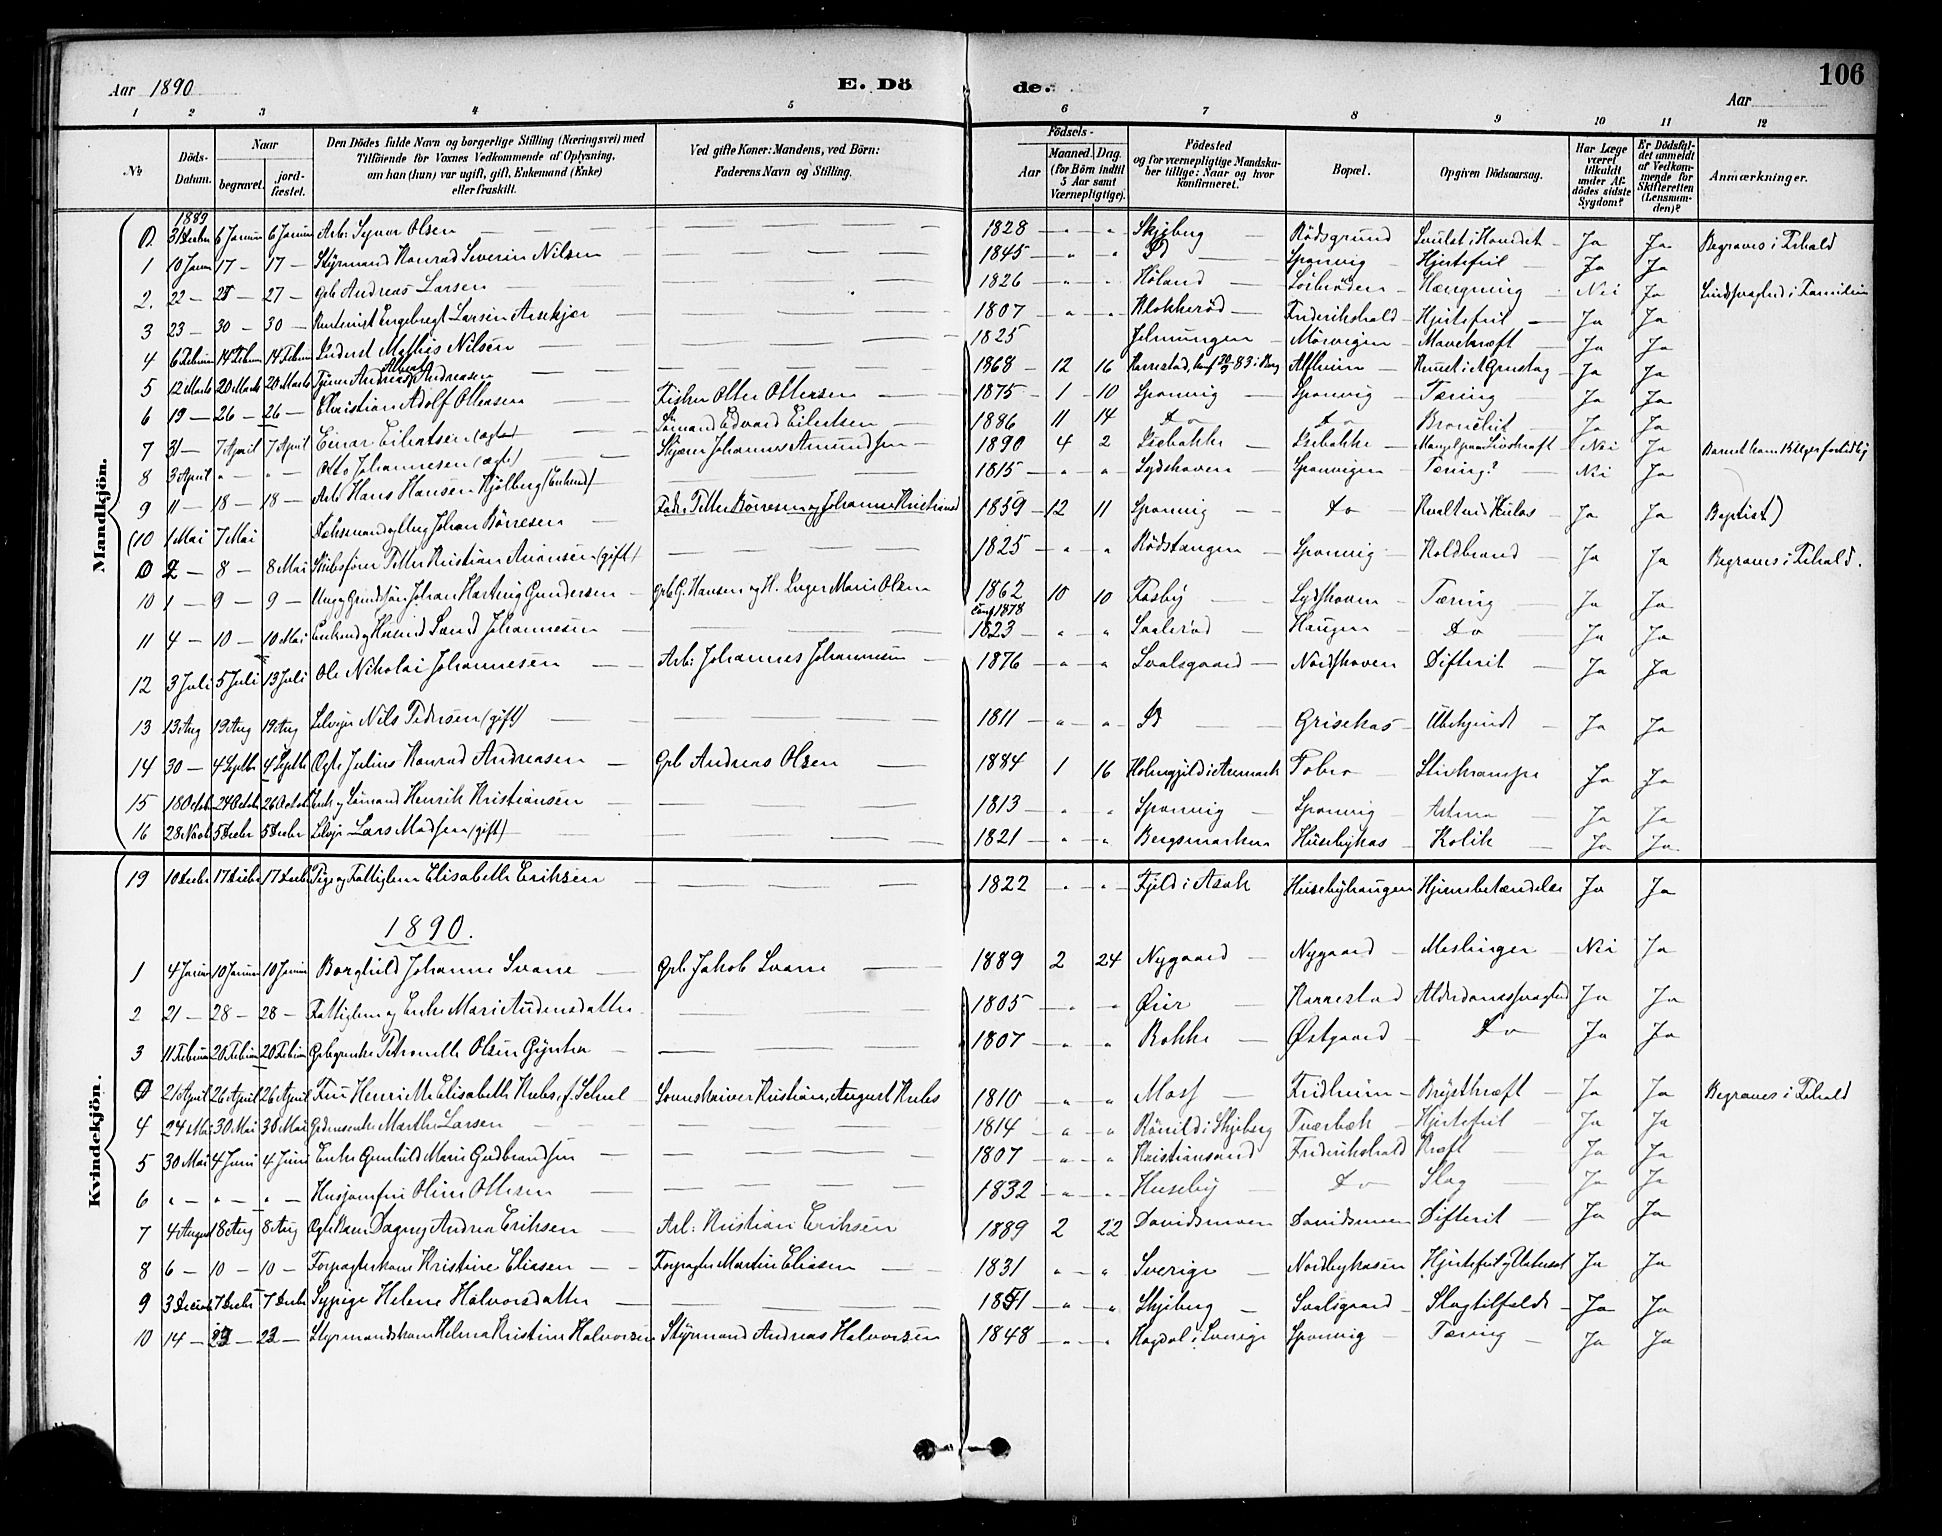 106
Aar 1890
E. Döde.
Aar
1 2 3 4 5 6 7 8 9 10 11 12
No
Döds-Datum.
Naar
begravet.
jord-fæstet.
Den Dödes fulde Navn og borgerlige Stilling (Næringsvei) med
Tilföiende for Voxnes Vedkommende af Oplysning,
om han (hun) var ugift, gift, Enkemand (Enke)
eller fraskilt.
Ved gifte Koner: Mandens, ved Börn:
Faderens Navn og Stilling.
Födsels-
Aar
Maaned. Dag.
(for Börn indtil
5 Aar samt
Værnepligtige).
Födested
og for værnepligtige Mandska-
ber tillige: Naar og hvor
konfirmeret.
Bopæl.
Opgiven Dödsaarsag.
Har Læge
været
tilkaldt
under Af-
dödes sidste
Sygdom?
Er Dödsfal-
det anmeldt
af Vedkom-
mende for
Skifteretten
(Lensman-
den)?
Anmærkninger.
Mandkjön.
1889
0. 31 Decbr 6 Januar 6 Januar Arb: Syver Olsen — 1828 Skjeberg Rödsgrund Svulst i Hovedet Ja Ja Begraves i Frhald
1 10 Janu 17 — 17 — Styrmand Konrad Severin Nilsen — 1845 Do Sponvig Hjertefeil Ja Ja
2. 22 — 27 — 27 — Grb Andreas Larsen — 1826 Höland Hængning Nei Ja Sindssvaghed i Familien
3 23 — 30 — 30 — Engebregt Larsen — 1807 Klokkeröd Frederikshald Hjertefeil Ja Ja
4 6 Februar 14 Febru 14 Februar Inderst Mathis Nilsen — 1825 Mörvigen Mavekræft Ja Ja
5 12 Marts 20 Marts 20 Marts Tjener Andreas Albert Andreasen — 1868 12 16 Karrestad, konf 83 i Berg Ja Ja
6 19 — 26 — 26 — Christian Adolf Ottersen Fisker Otter Ottersen 1875 1 10 Sponvig Sponvig Tæring Ja Ja
7 31 — 7 April 7 April Einar Eilertsen (ægte) Sömand Edvard Eilertsen 1886 11 14 Do Do Bronchit Ja Ja
8 3 April " " Otto Johannesen (ægte) Johannes Amundsen 1890 4 2 Isebakke Isebakke Mangel paa Livskraft Nei Ja
9 11 — 18 — 18 — Arb Hans Hansen Kjölberg (Enkemd) — 1815 Lydshaven Sponvigen Tæring? Nei Ja
(10 1 Mai 7 Mai Johan Börresen Fadr. Petter Börresen og Johanne Kristiansd 1859 12 11 Sponvig Do Ja Ja Baptist)
0 2 — 8 — 8 Mai Skibsförer Petter Kristian Arvensen (gift) — 1825 Rödstangen Sponvig Koldbrand Ja Ja Begraves i Frhald.
10 1 — 9 — 9 — Johan Hartvig Gundersen Grb G. Hansen og H. Inger Marie Olsen 1862 10 10 Lydshaven Tæring Ja Ja
Conf 1878
11 4 — 10 — 10 Mai Enkemd og Husmd Svend Johannesen — 1823 Haugen Do Ja Ja
12 3 Juli 5 Juli 13 Juli Ole Nikolai Johannesen Arb: Johannes Johannesen 1876 Svalsgaard Nordshaven Difterit Ja Ja
13 13 Aug 19 Aug 19 Aug Selveier Nils Pedersen (gift) — 1811 Do Grisekas Ubekjendt Ja Ja
14 30 — 4 Septbr 4 Septbr Ægte Julius Konrad Andreasen Grb Andreas Olsen 1884 1 16 Holmgjeld i Aremark Stivkrampe Ja Ja
15 18 Octob 24 Octob 26 Octob Enk og Sömand Henrik Kristiansen — 1813 Sponvig Sponvig Astma Ja Ja
16 28 Novb 5 Decbr 5 Decbr Selveier Lars Madsen (gift) — 1821 Bergsmarken Husebykas Kolik Ja Ja
Kvindekjön.
19 10 Decbr 17 Decbr 17 Decbr Pige og Fattiglem Elisabeth Eriksen — 1822 Fjeld i Asak Husebyhaugen Hjernebetændelse Ja Ja
1890.
1 4 Januar 10 Januar 10 Januar Borghild Johanne Svane Grb Jakob Svane 1889 2 24 Nygaard Nygaard Meslinger Nei Ja
2 21 — 28 — 28 — Fattiglem og Enke Mari Audensdatter — 1805 Öier Karrestad Alderdomssvaghed Ja Ja
3 11 Februar 20 Februar 20 Februar Petronelle Olsen — 1807 Bakke Östgaard Do Ja Ja
0 21 April 26 April 26 April Fru Henriette Elisabeth Kubs, f. Kristian August Kubs 1810 Moss Fridheim Brystkræft Ja Ja Begraves i Frhald
4 24 Mai 30 Mai 30 Mai Marthe Larsen — 1814 i Skjeberg Tværbæk Hjertefeil Ja Ja
5 30 Mai 4 Juni 4 Juni Enke Gunhild Marie Gudbrandsen — 1807 Kristiansand Frederikshald Kræft Ja Ja
6 " " " Husjomfru Oline Ottesen — 1832 Huseby Do Slag Ja Ja
7 4 August 8 Aug 8 Aug Ægte Barn Dagny Andrea Eriksen Arb: Kristian Eriksen 1889 2 22 Davidsmoen Davidsmoen Difterit Ja Ja
8 6 — 10 — 10 — Forpagterkone Kristine Eliasen Forpagter Martin Eliasen 1831 Sverige Nordbykasen Hjertefeil og Vatersot Ja Ja
9 3 Decbr 7 Decbr 7 Decbr Sypige Helene Halvorsdatter — 1851 Skjeberg Svalsgaard Slagtilfælde Ja Ja
10 14 — 23 — 23 — Styrmandskone Helena Kristine Halvorsen Styrmand Andreas Halvorsen 1848 i Sverige Sponvig Tæring Ja Ja